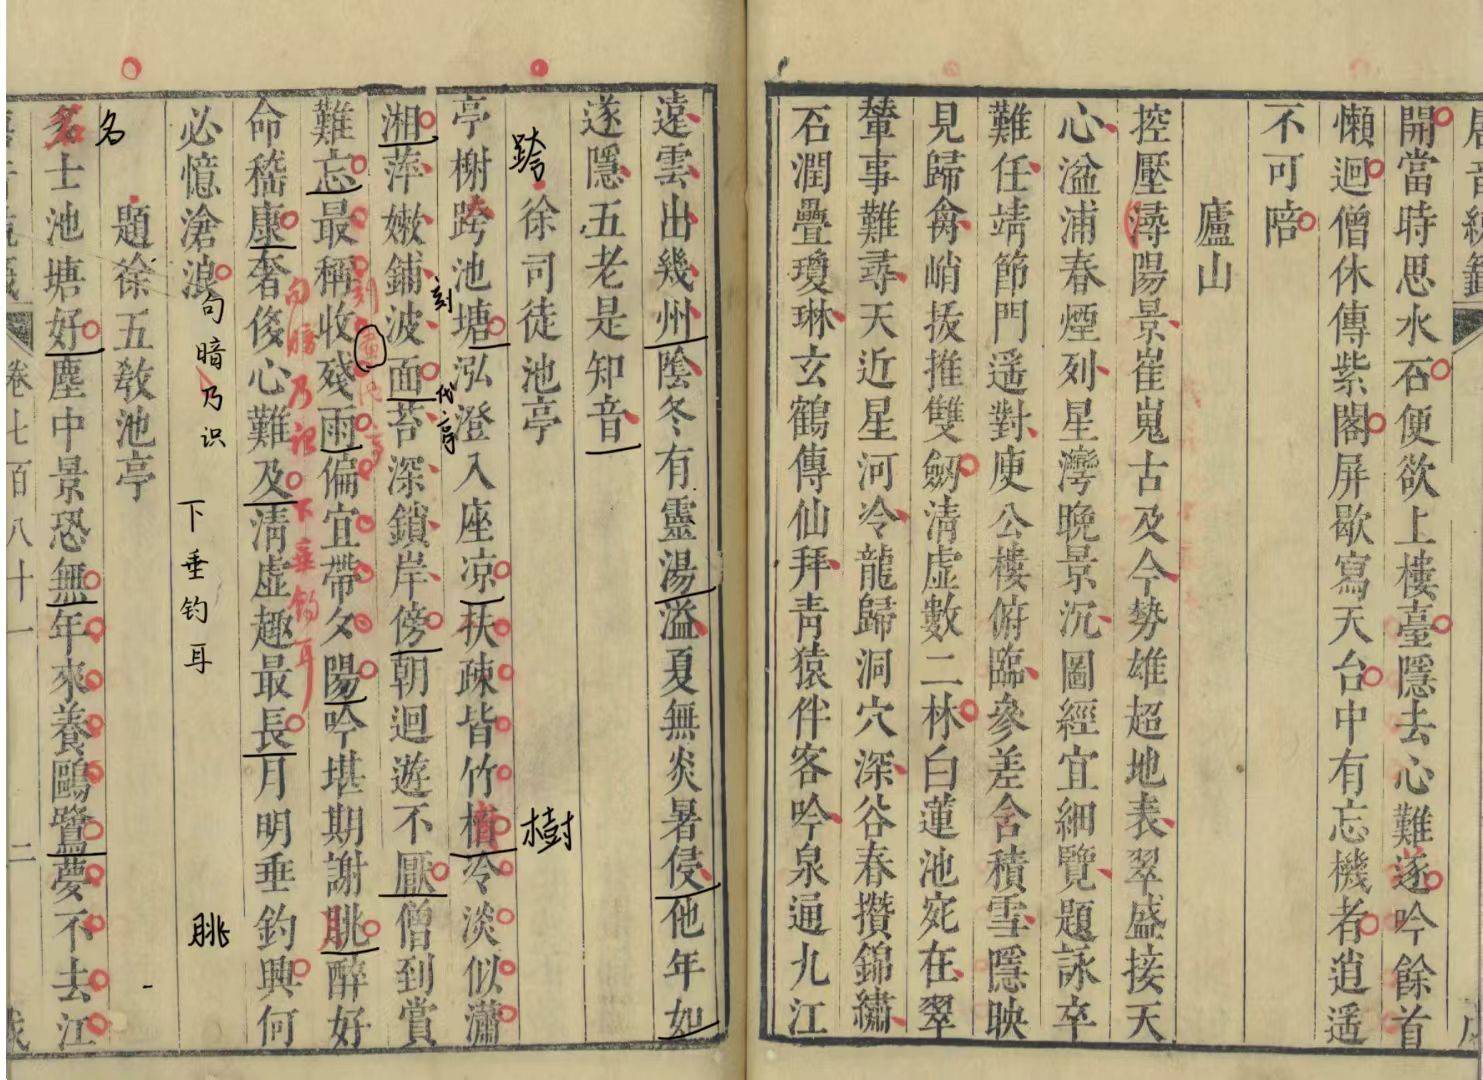 開當時思水石便欲上樓臺隱去心難遂吟餘首
懶迴僧休傳紫閣屏歇寫天台中有忘機者逍遥
不可陪
廬山
控壓潯陽景崔嵬古及今勢雄超地表翠盛接天
心湓浦春煙列星灣晚景沉圖經宜細覽題詠卒
難任靖節門遥對庾公樓俯臨參差含積雪隱映
見歸禽峭拔推雙劒清虛數二林白蓮池宛在翠
輦事難尋天近星河冷龍歸洞穴深谷春攢錦繡
石潤疊瓊琳玄鶴傳仙拜青猿伴客吟泉通九江
遠雲出幾州陰冬有靈湯溢夏無炎暑侵他年如
遂隱五老是知音
徐司徒池亭
跨
樹
亭榭跨池塘泓澄入座凉扶疎皆竹檜冷淡似瀟
刻
湘萍嫩鋪波面苔深鎖岸傍朝迴遊不厭僧到賞
難忘最稱收殘雨偏宜帶夕陽吟堪期謝朓醉好
命嵇康奢侈心難及清虛趣最長月明垂釣興何
必憶滄浪
句暗乃识
下垂钓耳
朓
題徐五敎池亭
名
名士池塘好塵中景恐無年來養鷗鷺夢不去江
卷七百八十一
二